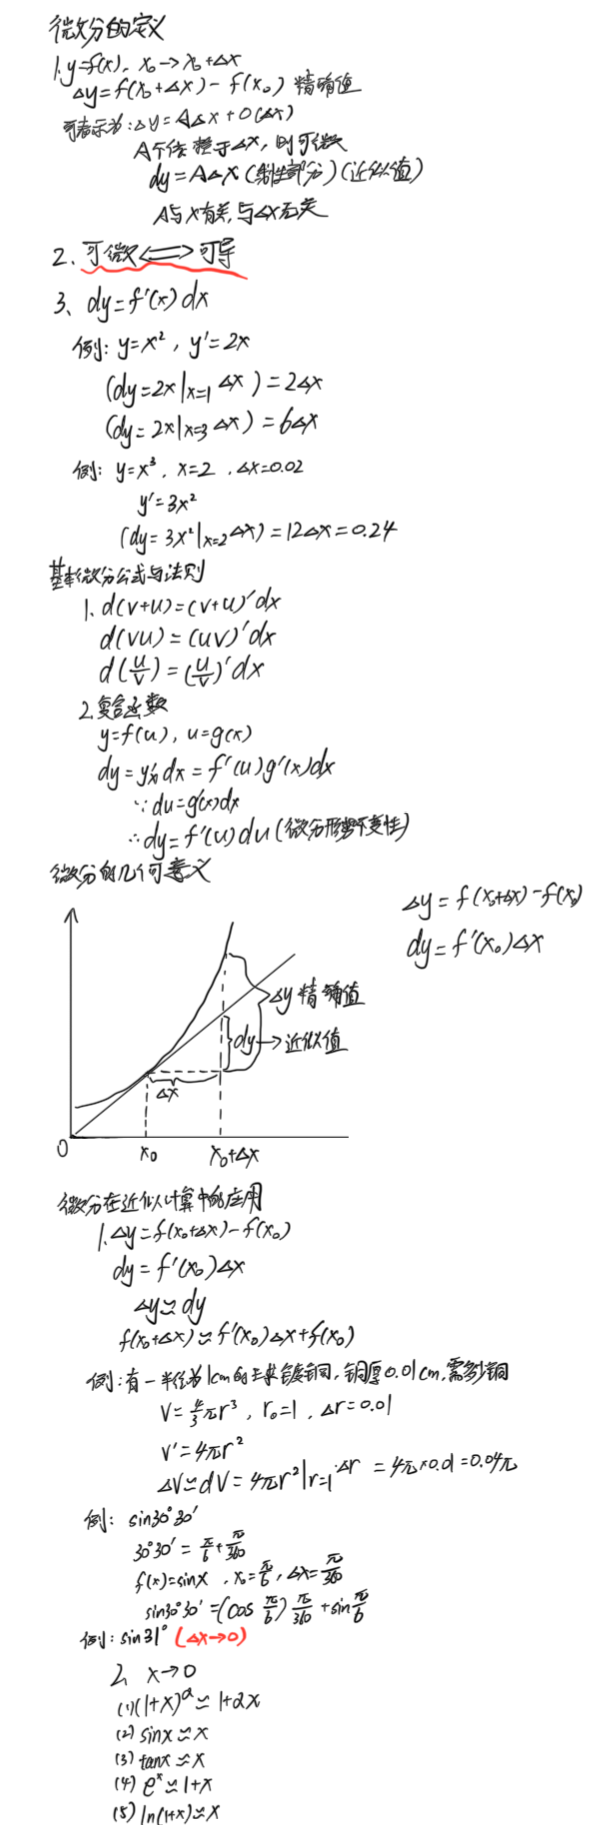 微分的定义
1. y=f(x), x₀→x₀+Δx
Δy=f(x₀+Δx)-f(x₀) 精确值
可表示为:Δy=AΔx+o(Δx)
A不依赖于Δx,则可微
dy=AΔx(线性部分)(近似值)
A与x有关,与Δx无关
2、可微⟺可导
3、dy=f'(x)dx
例:y=x², y'=2x
(dy=2x|x=1 Δx)=2Δx
(dy=2x|x=3 Δx)=6Δx
例:y=x³, x=2, Δx=0.02
y'=3x²
(dy=3x²|x=2 Δx)=12Δx=0.24
基本微分公式与法则
1. d(v+u)=(v+u)'dx
d(vu)=(uv)'dx
d(u/v)=(u/v)'dx
2.复合函数
y=f(u), u=g(x)
dy=y'ₓdx=f'(u)g'(x)dx
∵du=g'(x)dx
∴dy=f'(u)du(微分形势不变性)
微分的几何意义
Δy=f(x₀+Δx)-f(x₀)
dy=f'(x₀)Δx
Δy精确值
dy→近似值
Δx
0 x₀ x₀+Δx
微分在近似计算中的应用
1. Δy=f(x₀+Δx)-f(x₀)
dy=f'(x₀)Δx
Δy≈dy
f(x₀+Δx)≈f'(x₀)Δx+f(x₀)
例:有一半径为1cm的球镀铜,铜厚0.01cm,需多少铜
V=4/3πr³, r₀=1, Δr=0.01
V'=4πr²
ΔV≈dV=4πr²|r=1·Δr=4π×0.01=0.04π
例:sin30°30'
30°30'=π/6+π/360
f(x)=sinx, x₀=π/6, Δx=π/360
sin30°30'=(cos π/6)π/360+sin π/6
例:sin31°(Δx→0)
2、x→0
(1)(1+x)^α≈1+αx
(2) sinx≈x
(3) tanx≈x
(4) eˣ≈1+x
(5) ln(1+x)≈x